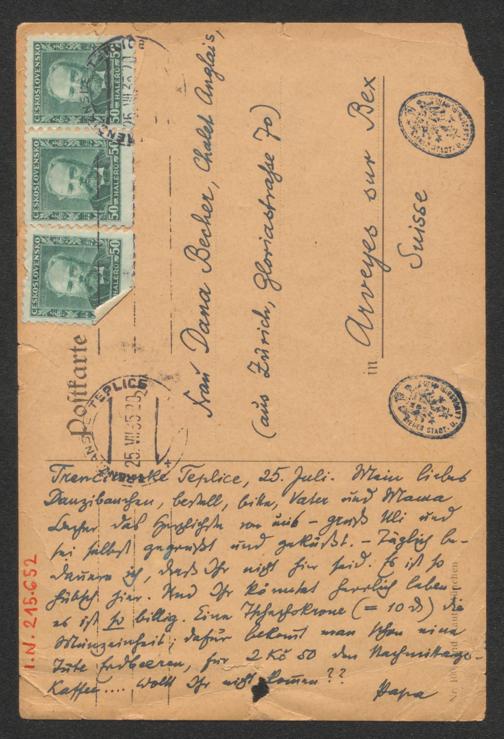 ČESKOSLOVENSKO
50 HALÉŘŮ 50
ČESKOSLOVENSKO
50 HALÉŘŮ 50
ČESKOSLOVENSKO
HALÉŘŮ 50
25.VII.35.20
TEPLICE
25.VII.35.20
Postkarte
Frau Dana Becher, Chalet Anglais,
(aus Zürich, Gloriastraße 70)
in Arveyes sur Bex
Suisse
WIENER STADT. U.
WIENER STADT. U.
Trencianske Teplice, 25. Juli. Mein liebes
bestell, bitte, Vater und Mama
Becher das Herzlichste von uns – grüß Uli und
sei selbst gegrüßt und geküßt. – Täglich be-
dauere ich, daß Ihr nicht hier seid. Es ist so
hübsch hier. Und Ihr könntet herrlich leben
es ist so billig. Eine Tschechokrone (= 10 d) die
Münzeinheit; dafür bekommt man schon eine
Tüte Erdbeeren, für 2 Kč 50 den Nachmittags-
kaffee.... Wollt Ihr nicht kommen??
Papa
I.N. 215.652